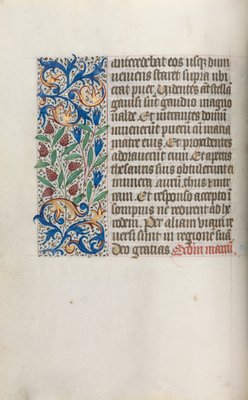 antecedebat eos usq; dum
ueniens staret supra ubi
erat puer. Videntes aut stella
gauisi sut gaudio magno
ualde. Et intrantes domu
inuenerut pueru cu maria
matre eius. Et procidentes
adorauerut eum. Et apertis
thesauris suis obtulerut ei
munera. auru. thus. z mir
ram. Et responso accepto i
sompnis ne redirent ad he
rodem. Per aliam uia re
uersi sunt in regione sua.
Deo gratias. Scdm marcu.